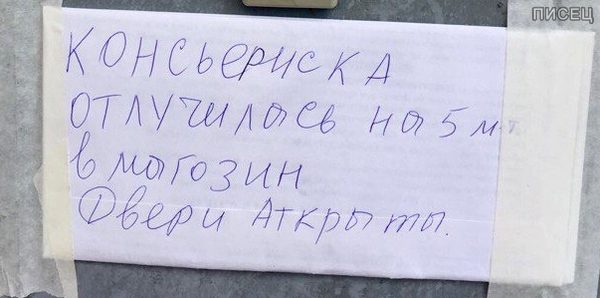 ПИСЕЦ
КОНСЬЕРИСКА
ОТЛУЧИЛАСЬ на 5 м-т
в могозин
Двери Аткрыты.